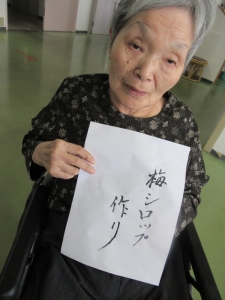 梅シロップ
作り